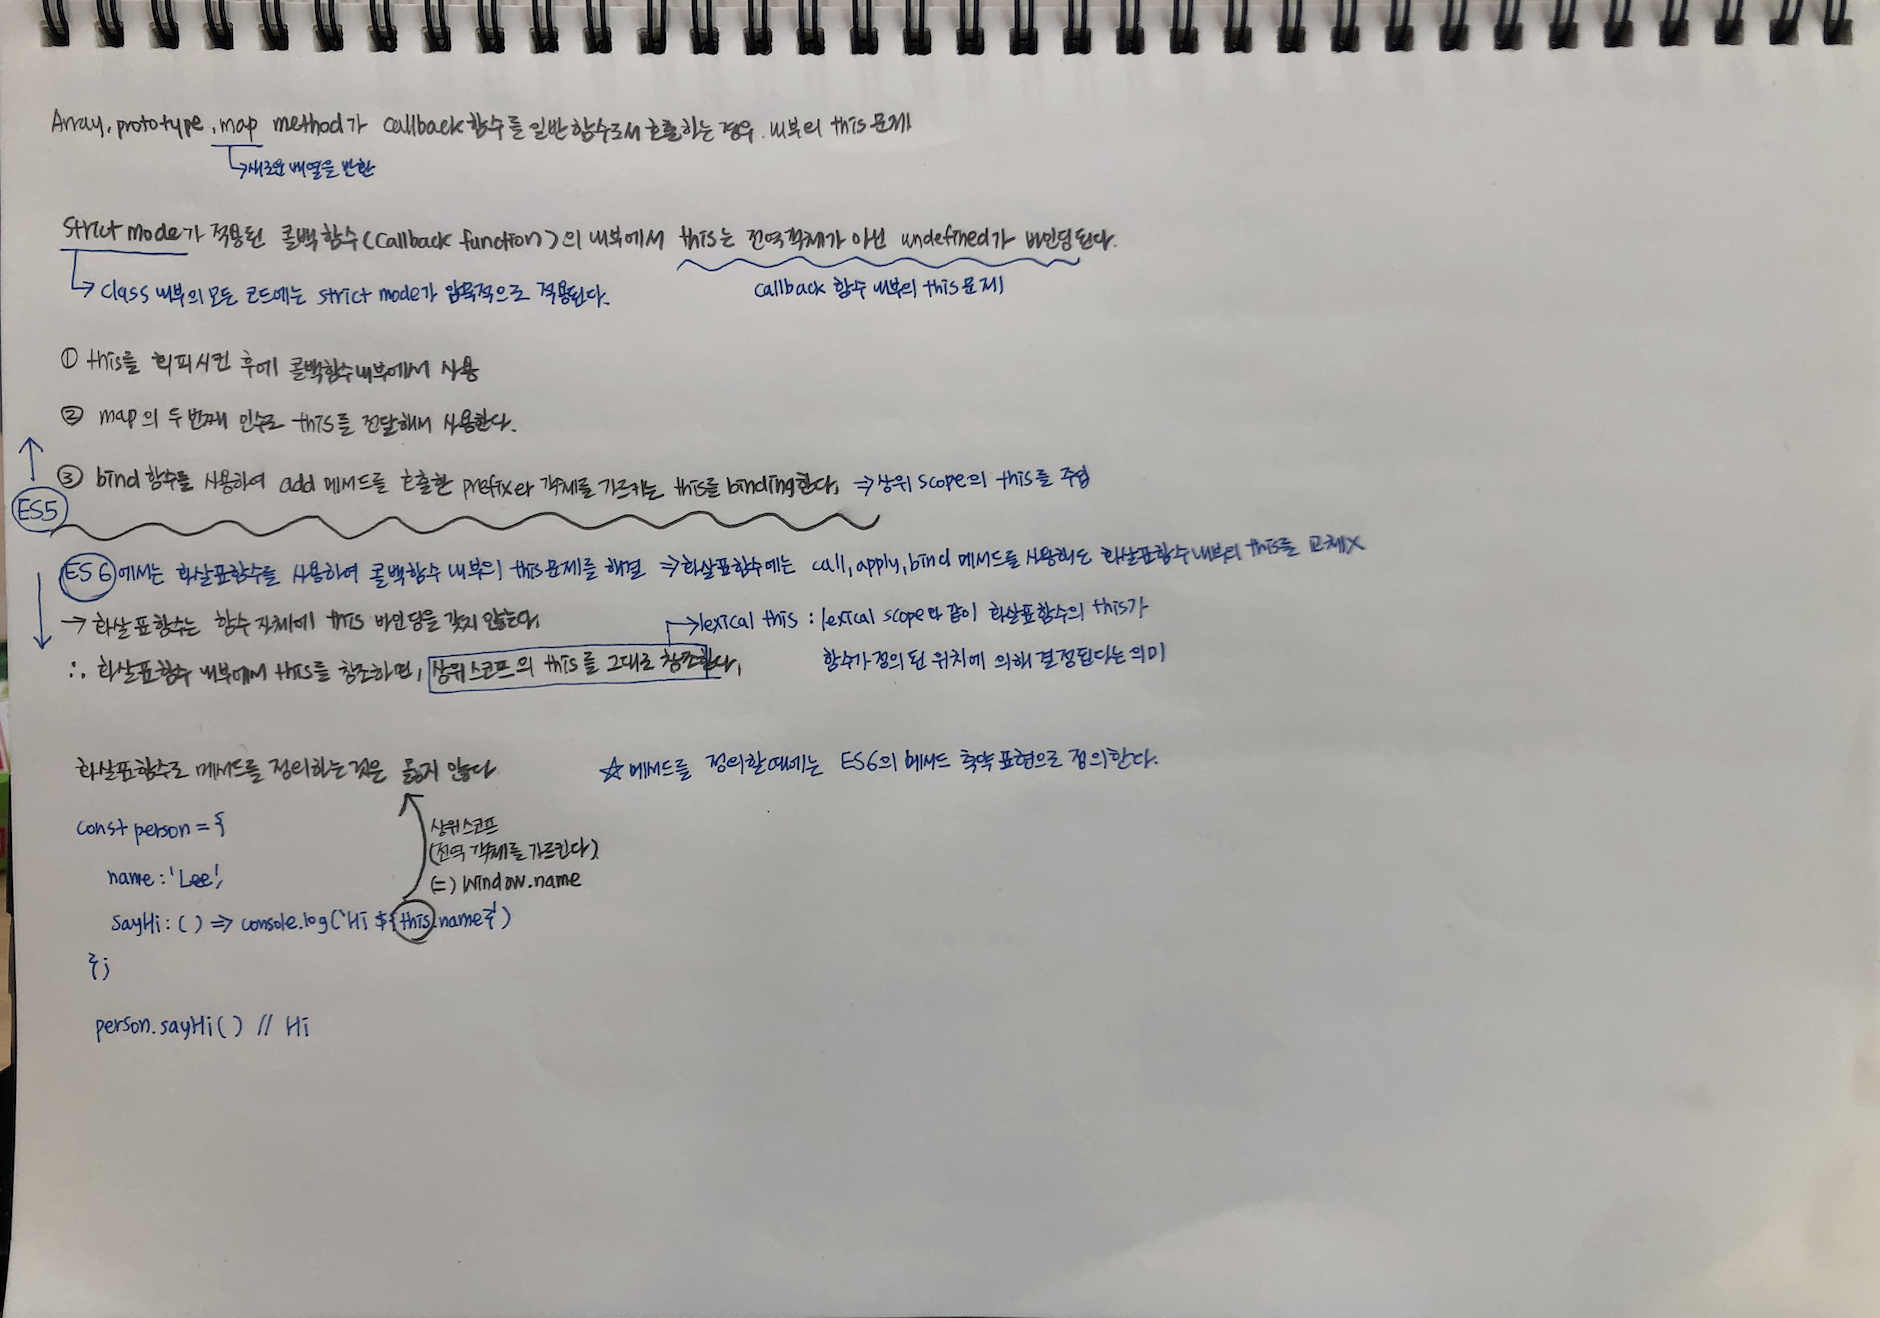 Array.prototype.map method가 callback함수를 일반함수로서 호출하는 경우. 내부의 this문제
↳새로운 배열을 반환
Strict mode가 적용된 콜백함수(Callback function)의 내부에서 this는 전역객체가 아닌 undefined가 바인딩된다.
↳ class 내부의 모든 코드에는 strict mode가 암묵적으로 적용된다.
callback 함수 내부의 this문제
① this를 회피시킨 후에 콜백함수내부에서 사용
② map의 두번째 인수로 this를 전달해서 사용한다.
③ bind함수를 사용하여 add 메서드를 호출한 prefixer 객체를 가르키는 this를 binding한다. ⇒상위 scope의 this를 주입
ES5
ES6에서는 화살표함수를 사용하여 콜백함수 내부의 this문제를 해결 ⇒화살표함수에는 call, apply, bind 메서드를 사용해도 화살표함수내부의 this를 교체X
→ 화살표함수는 함수자체에 this 바인딩을 갖지 않는다.
→lexical this : lexical scope와 같이 화살표함수의 this가
함수가 정의된 위치에 의해 결정된다는 의미
∴ 화살표함수 내부에서 this를 참조하면, 상위스코프의 this를 그대로 참조한다.
화살표함수로 메서드를 정의하는 것은 옳지 않다
☆메서드를 정의할때에는 ES6의 메서드 축약표현으로 정의한다.
const person = {
name : 'Lee',
sayHi : ( ) => console.log(`Hi ${this.name}`)
};
상위스코프
(전역 객체를 가르킨다)
(=) window.name
person.sayHi( ) // Hi